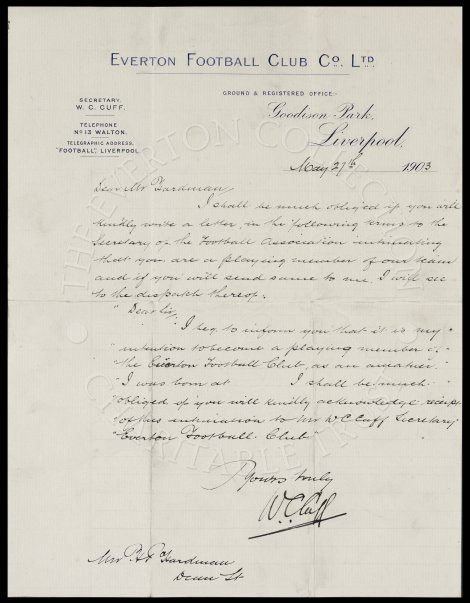 EVERTON FOOTBALL CLUB Co. LTD.
GROUND & REGISTERED OFFICE:-
SECRETARY,
W. C. CUFF.
TELEPHONE
No 13 WALTON.
TELEGRAPHIC ADDRESS,
"FOOTBALL", LIVERPOOL.
Goodison Park,
Liverpool,
May 27th 1903
Dear Mr Hardman,
I shall be much obliged if you will
kindly write a letter, in the following terms to the
Secretary of the Football Association intimating
that you are a playing member of our team
and if you will send same to me, I will see
to the dispatch thereof.
"Dear Sir,
"I beg to inform you that it is my
"intention to become a playing member of
"the Everton Football Club, as an amateur.
"I was born at I shall be much
"obliged if you will kindly acknowledge receipt
"of this intimation to Mr W C Cuff Secretary
"Everton Football Club"
Yours truly
W. C. Cuff
Mr H P Hardman
St
THE EVERTON COLLECTION
CHARITABLE TRUST